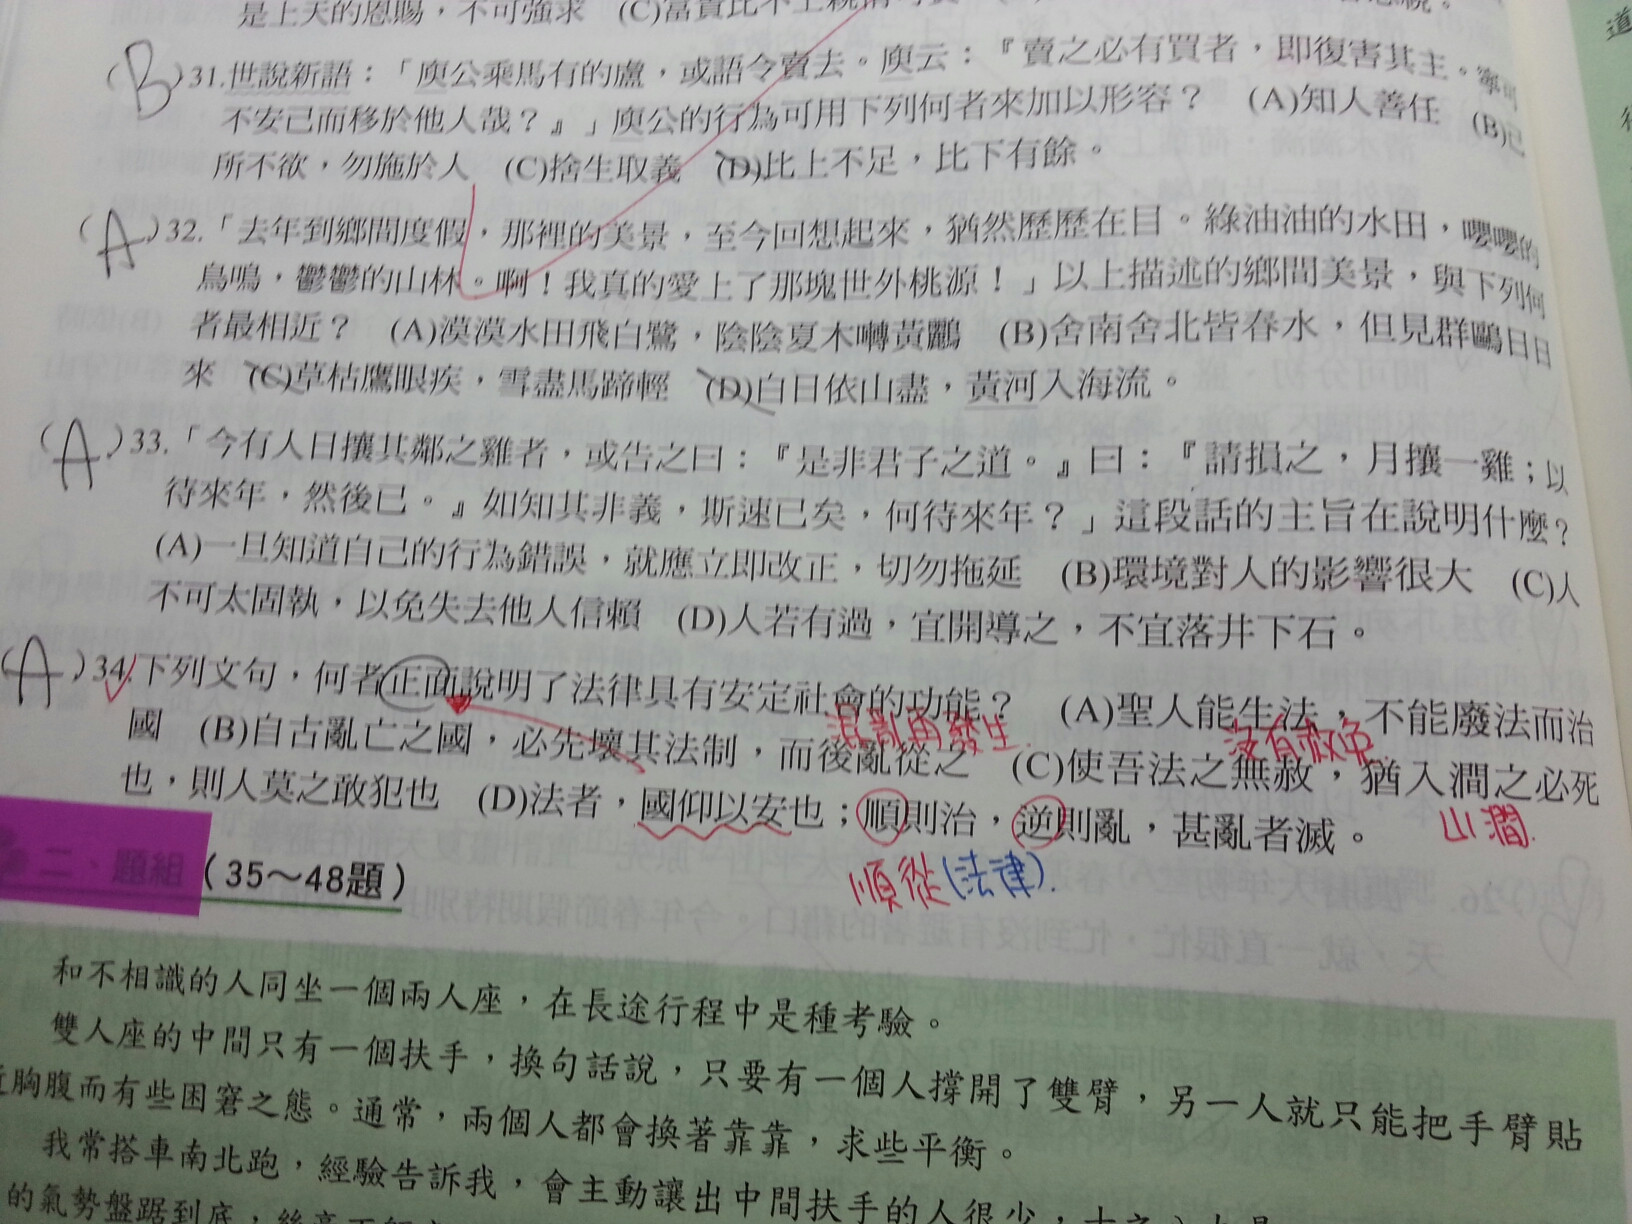 是上天的恩賜，不可強求 (C)富貴比不上親情可貴
(B)31.世說新語：「庾公乘馬有的盧，或語令賣去。庾云：『賣之必有買者，即復害其主。寧可
不安己而移於他人哉？』」庾公的行為可用下列何者來加以形容？ (A)知人善任 (B)己
所不欲，勿施於人 (C)捨生取義 (D)比上不足，比下有餘。
(A)32.「去年到鄉間度假，那裡的美景，至今回想起來，猶然歷歷在目。綠油油的水田，嚶嚶的
鳥鳴，鬱鬱的山林。啊！我真的愛上了那塊世外桃源！」以上描述的鄉間美景，與下列何
者最相近？ (A)漠漠水田飛白鷺，陰陰夏木囀黃鸝 (B)舍南舍北皆春水，但見群鷗日日
來 (C)草枯鷹眼疾，雪盡馬蹄輕 (D)白日依山盡，黃河入海流。
(A)33.「今有人日攘其鄰之雞者，或告之曰：『是非君子之道。』曰：『請損之，月攘一雞；以
待來年，然後已。』如知其非義，斯速已矣，何待來年？」這段話的主旨在說明什麼？
(A)一旦知道自己的行為錯誤，就應立即改正，切勿拖延 (B)環境對人的影響很大 (C)人
不可太固執，以免失去他人信賴 (D)人若有過，宜開導之，不宜落井下石。
(A)34.下列文句，何者正面說明了法律具有安定社會的功能？ (A)聖人能生法，不能廢法而治
混亂再發生 沒有赦免
國 (B)自古亂亡之國，必先壞其法制，而後亂從之 (C)使吾法之無赦，猶入澗之必死
也，則人莫之敢犯也 (D)法者，國仰以安也；順則治，逆則亂，甚亂者滅。
山澗
順從(法律).
二、題組(35～48題)
和不相識的人同坐一個兩人座，在長途行程中是種考驗。
雙人座的中間只有一個扶手，換句話說，只要有一個人撐開了雙臂，另一人就只能把手臂貼
近胸腹而有些困窘之態。通常，兩個人都會換著靠靠，求些平衡。
我常搭車南北跑，經驗告訴我，會主動讓出中間扶手的人很少，
的氣勢盤踞到底，
道